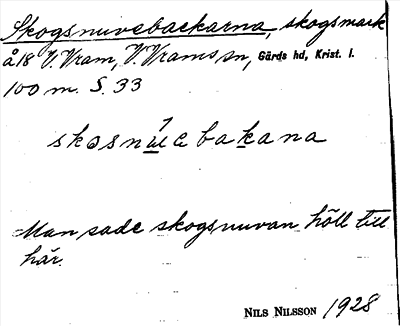 Skogsnuvebackarna, skogsmark
å 18 V. Vram, V. Vrams sn, Gärds hd, Krist. l.
100 m. S. 33
Man sade skogsnuvan höll till
här.
NILS NILSSON 1928